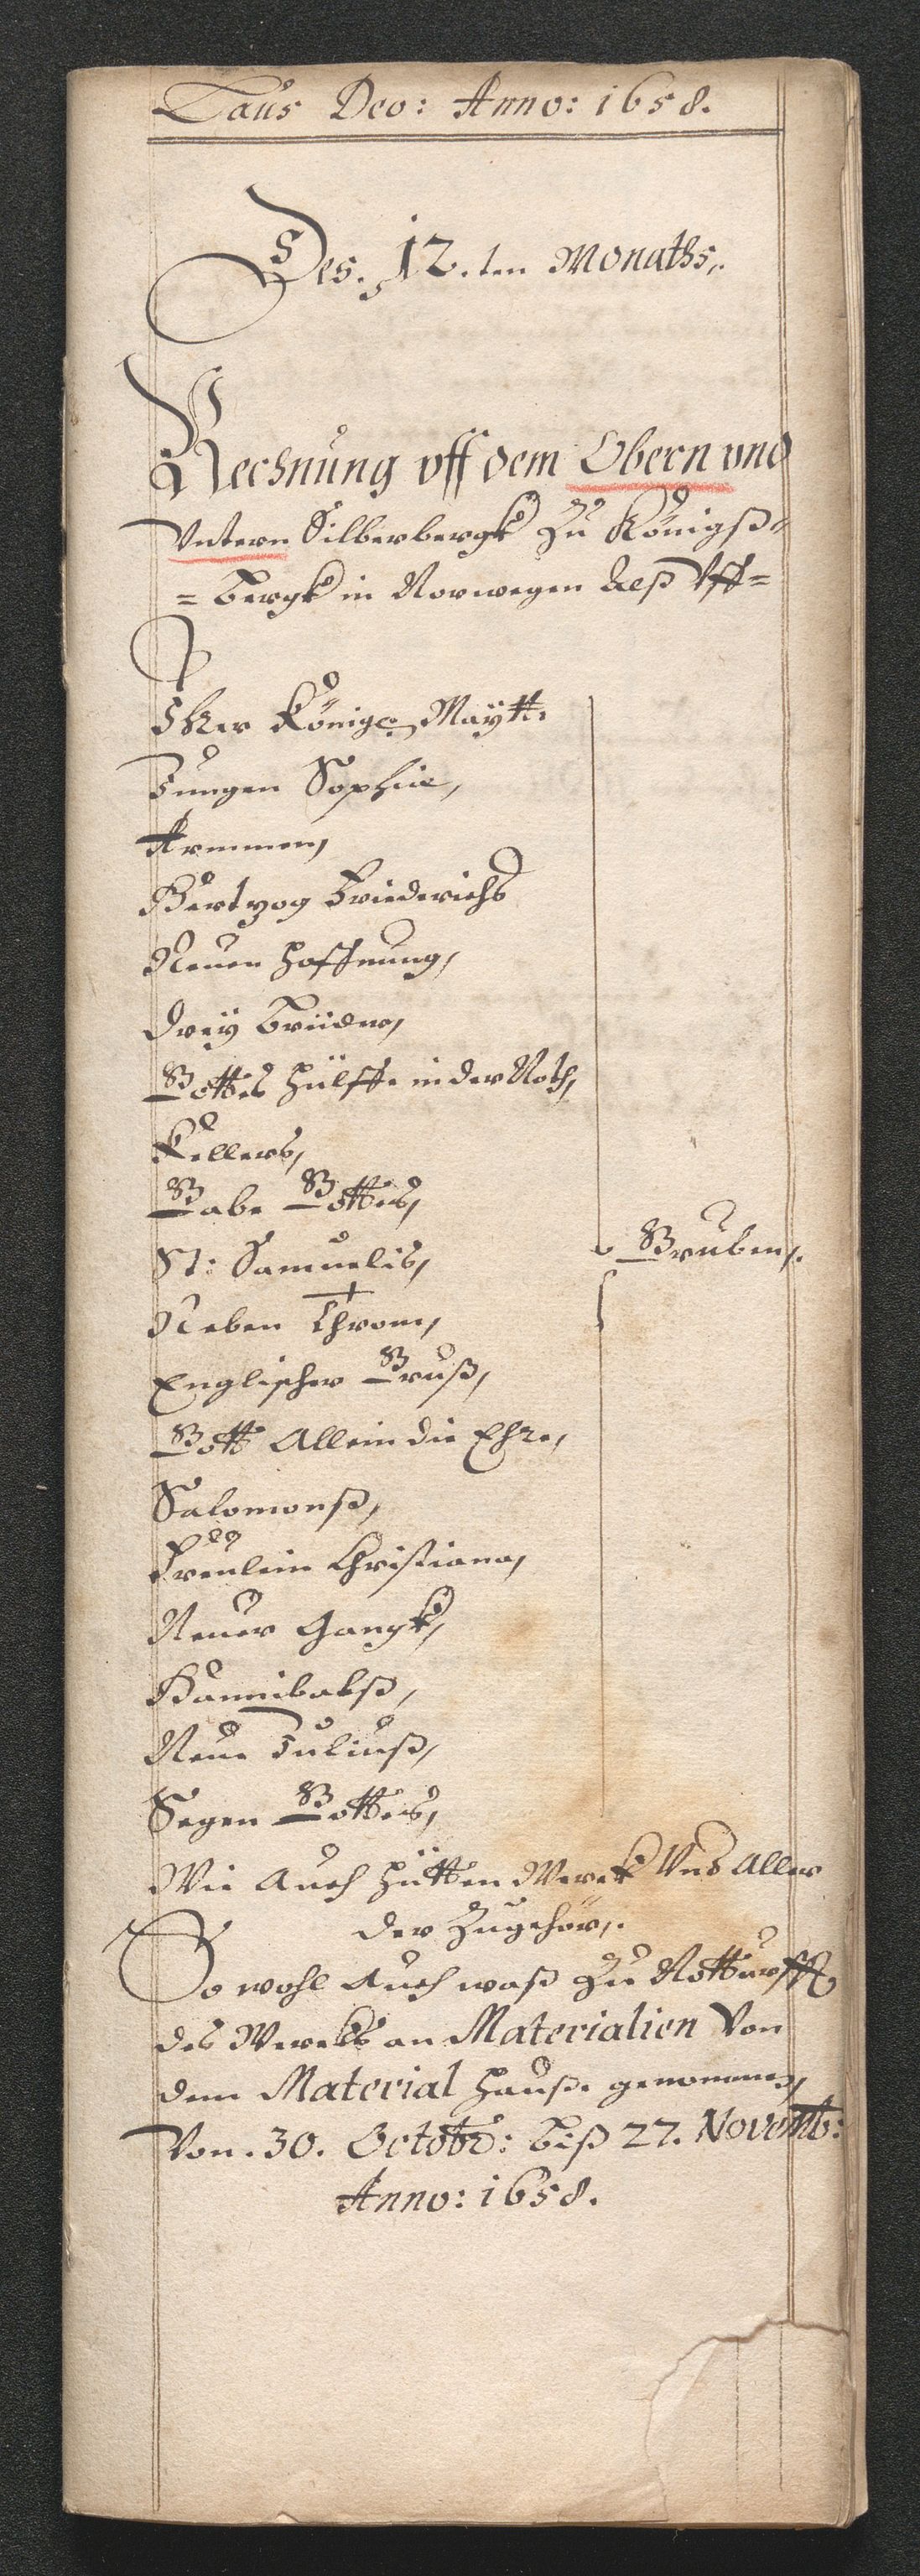 Laus Deo: Anno: 1658.
Des. 12.ten Monaths,.
Rechnung vff dem Obern vnd
Vntern Silberbergk Zu Königß-
=bergk in Norwegen Alß Vff=
Ihrer Könige. Maÿtt.
Jungen Sophie,
Armmen,
Hertzog Friederichs
Neuen Hoffnung,
Dreÿ Brüder,
Gottes Hülffe in der Noth,
Kellers,
Gabe Gottes,
St: Samuelis,
Gruben,.
Neben Throm,
Englischer Gruß,
Gott Allein die Ehre,
Salomonß,
Freulein Christiana,
Neuer Gangk,
Hannibalß,
Neue Juliuß,
Segen Gottes,
Wie Auch Hütten Werck Vnd Aller
der Zugehör,.
So wohl Auch waß Zu Notturfft
des Wercks an Materialien Von
dem Material Hauße genommen,
Von. 30. Octobr: biß 27. Novemb:
Anno: 1658.